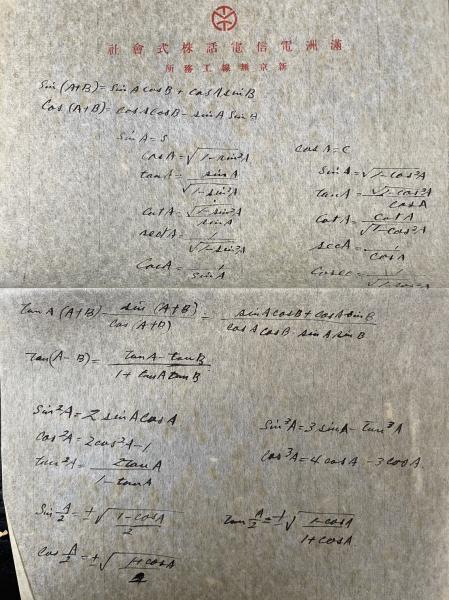 滿洲電信電話株式會社
新京無線工務所
Sin (A+B) = Sin A cosB + cosA sin B
Cos (A+B) = cosA cosB - sinA Sin B
Sin A = S
cosA = √1-sin²A
tanA = sinA / √1-sin²A
CotA = √1-sin²A / sinA
secA = 1 / √1-sin²A
CosecA = 1 / sinA
cos A = C
Sin A = √1-cos²A
tanA = √1-cos²A / cosA
CotA = cotA / √1-cos²A
secA = 1 / cosA
Cosec = 1 / √1-cos²A
tanA (A+B) = sin (A+B) / cos (A+B) = sinA cosB + cosA sinB / cosA cosB - sinA sinB
tan(A-B) = tanA - tanB / 1 + tanA tanB
Sin²A = 2 sinA cosA
cos²A = 2cos²A - 1
tan²A = 2tanA / 1 - tanA
Sin³A = 3 sinA - tan³A
cos³A = 4 cosA - 3cosA
Sin A/2 = ±√1-cosA / 2
cos A/2 = ±√1+cosA / 2
tan A/2 = ±√1-cosA / 1+cosA